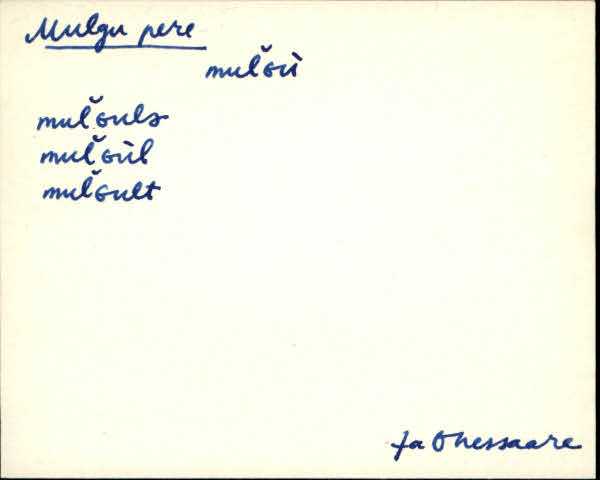 Mulgu pere
mul̆ɢù
mul̆ɢulə
mul̆ɢùl
mul̆ɢult
Ja Ohessaare